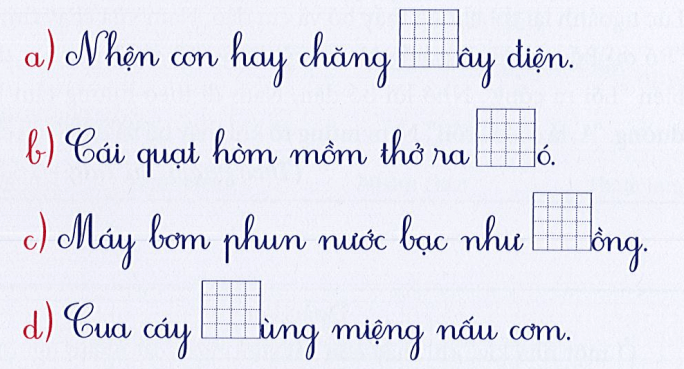 a) Nhện con hay chăng ây điện.
b) Cái quạt hòm mồm thở ra ó.
c) Máy bơm phun nước bạc như ồng.
d) Cua cáy ùng miệng nấu cơm.